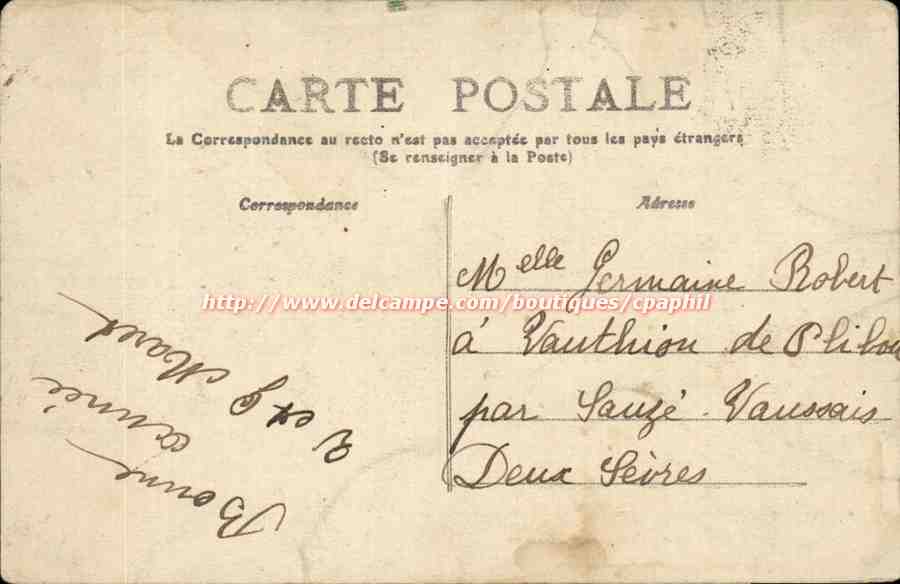 CARTE POSTALE
La Correspondance au recto n'est pas acceptée par tous les pays étrangers
(Se renseigner à la Poste)
Correspondance
Adresse
Bonne
année
et G Maret
Melle Germaine Robert
http://www.delcampe.com/boutiques/cpaphil
à Vauthion de Plibou
par Sauzé-Vaussais
Deux Sèvres